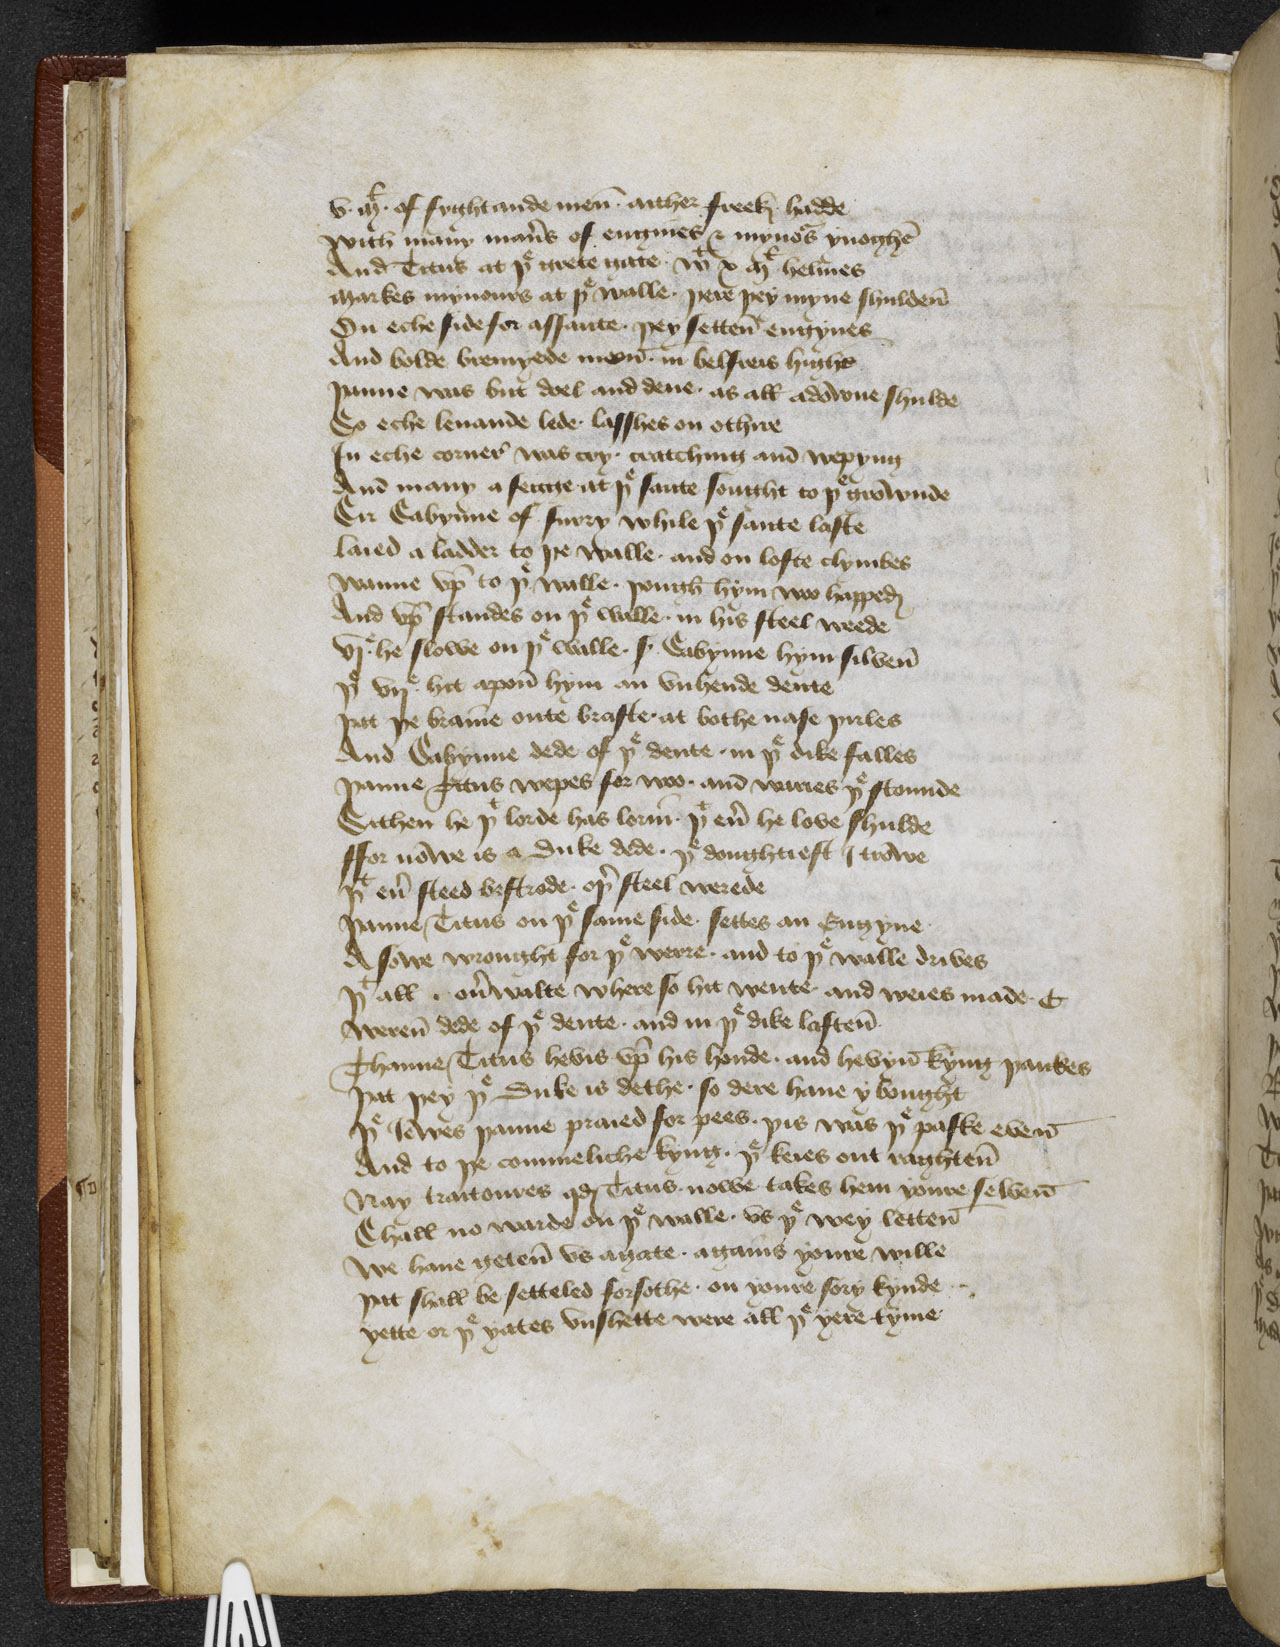 v. mł. of fyghtande men̄. aither freek hadde
With many man̄s of engines & mynoͬs ynoghē
And Titus at þͤ grete gate. wͭ x mł helmes
Markes mynours at þͤ walle. þere þey myne shulden̄
On eche side for assaute. þey setten̄ engynes
And bolde brenyede men̄. in belfreis highe
þanne was but doel and dene. as all adōwne shulde
So eche leuande lede. lasshes on othire
In eche corner̄ was cry. cratching and̄ wepyng
And̄ many a segge at þͤ saute sought to þͤ grōwnde
Sir Sabynne of surry while þͤ saute laste
Laied a ladder to þe walle. and on lofte clymbes
Wanne vp̄ to þͤ walle. þough hym woo happed
And vp̄ standes on þͤ walle. in his steel weede
vj. he slowe on þͤ walle. s. Sabynne hym silven̄
þͤ vijͤ. hit apon̄ hym an vnhende dente
þat þe braine oute braste. at bothe nase þirles
And Sabynne dede of þͤ dente. in þͤ dike falles
þanne Titus wepes for woo. and̄ waries þͤ stounde
Sithen he þͭ lorde has lorn̄. þͭ eū he love shulde
ffor nōwe is a Duke dede. þͤ doughtiest I trōwe
þͭ eū steed bestrode. oþ̄ steel werede
þanne Titus on þͤ same side. settes an Engyne
A sowe wrought for þͤ werre. and to þͤ walle drives
þͭ all . oūwalte where so hit wente. and weies made. C
Weren̄ dede of þͤ dente. and in þͤ dike lasten̄
Thanne Titus hevis vp̄ his honde. and hevyn̄ kyng þankes
þat þey þͤ Duke is dethe. so dere haue y bought
þͤ Iewes þanne praied for pees. þis was þͤ paske even̄
And to þe comeliche kyng. þͤ keies out raghten̄
Nay traitoures qd Titus. nowe takes hem youre selven̄
Shall no warde on þͤ walle. vs þͤ wey letten̄
We haue geten̄ vs agate. agains youre wille
þat shall be setteled forsothe. on youre sory kynde
yette or þͤ yates vnshette were all þͤ yere tyme